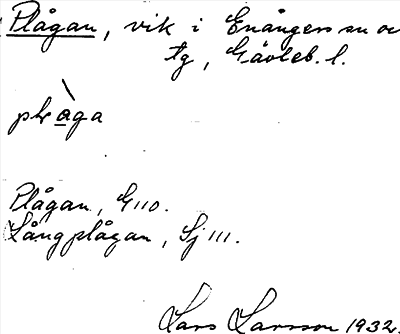 Plågan, vik i Enångers sn o
tg, Gävleb. l.
plåga
Plågan, G 110.
Långplågan, Sj 111.
Lars Larsson 1932.